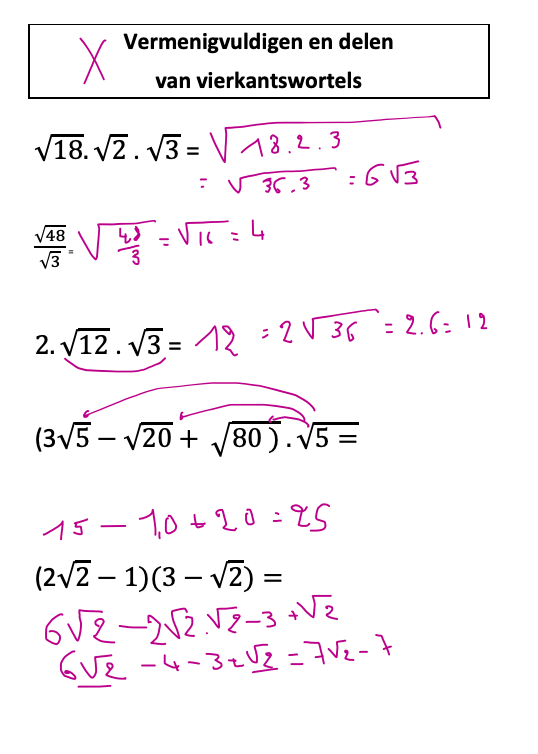 X
Vermenigvuldigen en delen
van vierkantswortels
√18. √2 . √3 = √18.2.3
= √36.3 = 6√3
√48/√3 = √48/3 = √16 = 4
2. √12 . √3 = 12 = 2√36 = 2.6 = 12
(3√5 − √20 + √80 ) . √5 =
15 − 10 + 20 = 25
(2√2 − 1)(3 − √2) =
6√2 − 2√2.√2 − 3 + √2
6√2 − 4 − 3 + √2 = 7√2 − 7